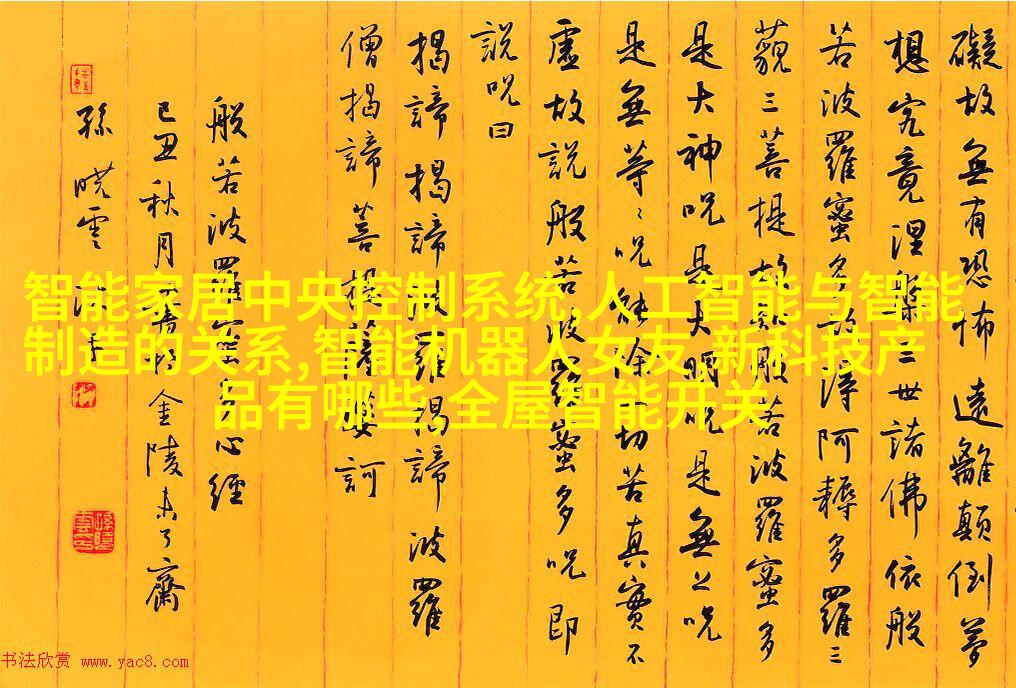 礙故無有恐怖遠離顛倒夢
想究竟涅槃三世諸佛依般
若波羅蜜多故得阿耨多羅三
藐三菩提故知般若波羅蜜多
是大神呪是大明呪是無上呪
是無等〻呪能除一切苦真實不
虛故說般若波羅蜜多呪即
說呪曰
揭諦揭諦波羅揭諦波羅
僧揭諦菩提薩婆訶
般若波羅蜜多心經
己丑秋月金陵未了齋
孫曉雲
智能家居中央控制系统,人工智能与智能
制造的关系,智能机器人女友,新科技产
品有哪些,全屋智能开关
书法欣赏 www.yac8.com